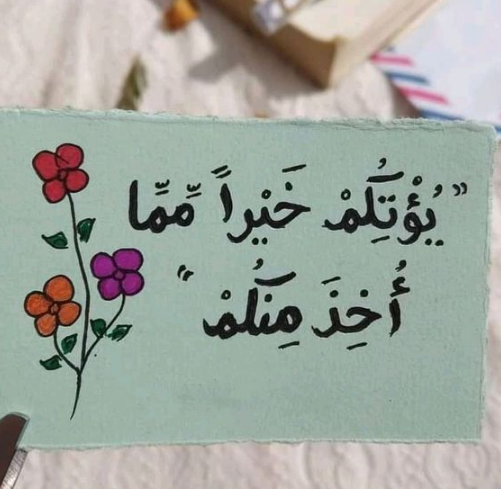 ”يُؤْتِكُمْ خَيْراً مِّمَّا
أُخِذَ مِنكُمْ“